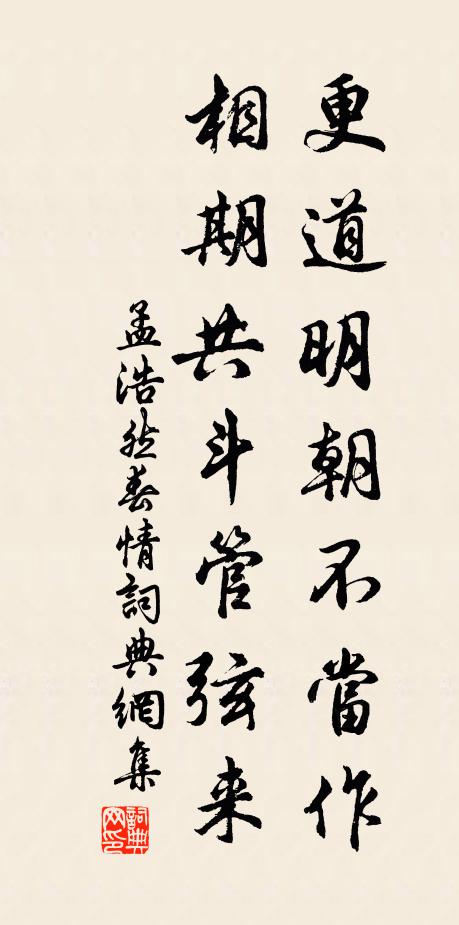 更道明朝不當作
相期共斗管弦来
孟浩然春情詞典網集
詞典網印